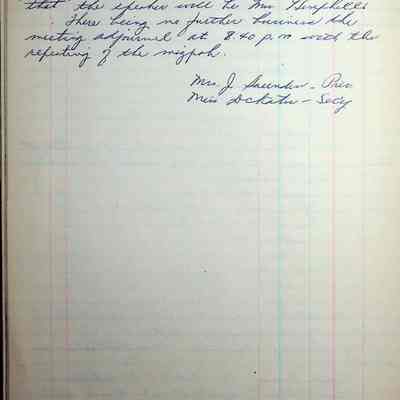 that the speaker will be Mrs
There being no further business the
meeting adjourned at 8.40 p.m with the
repeating of the mizpah.
Mrs. J. Saunders - Pres
Miss - Sec'y